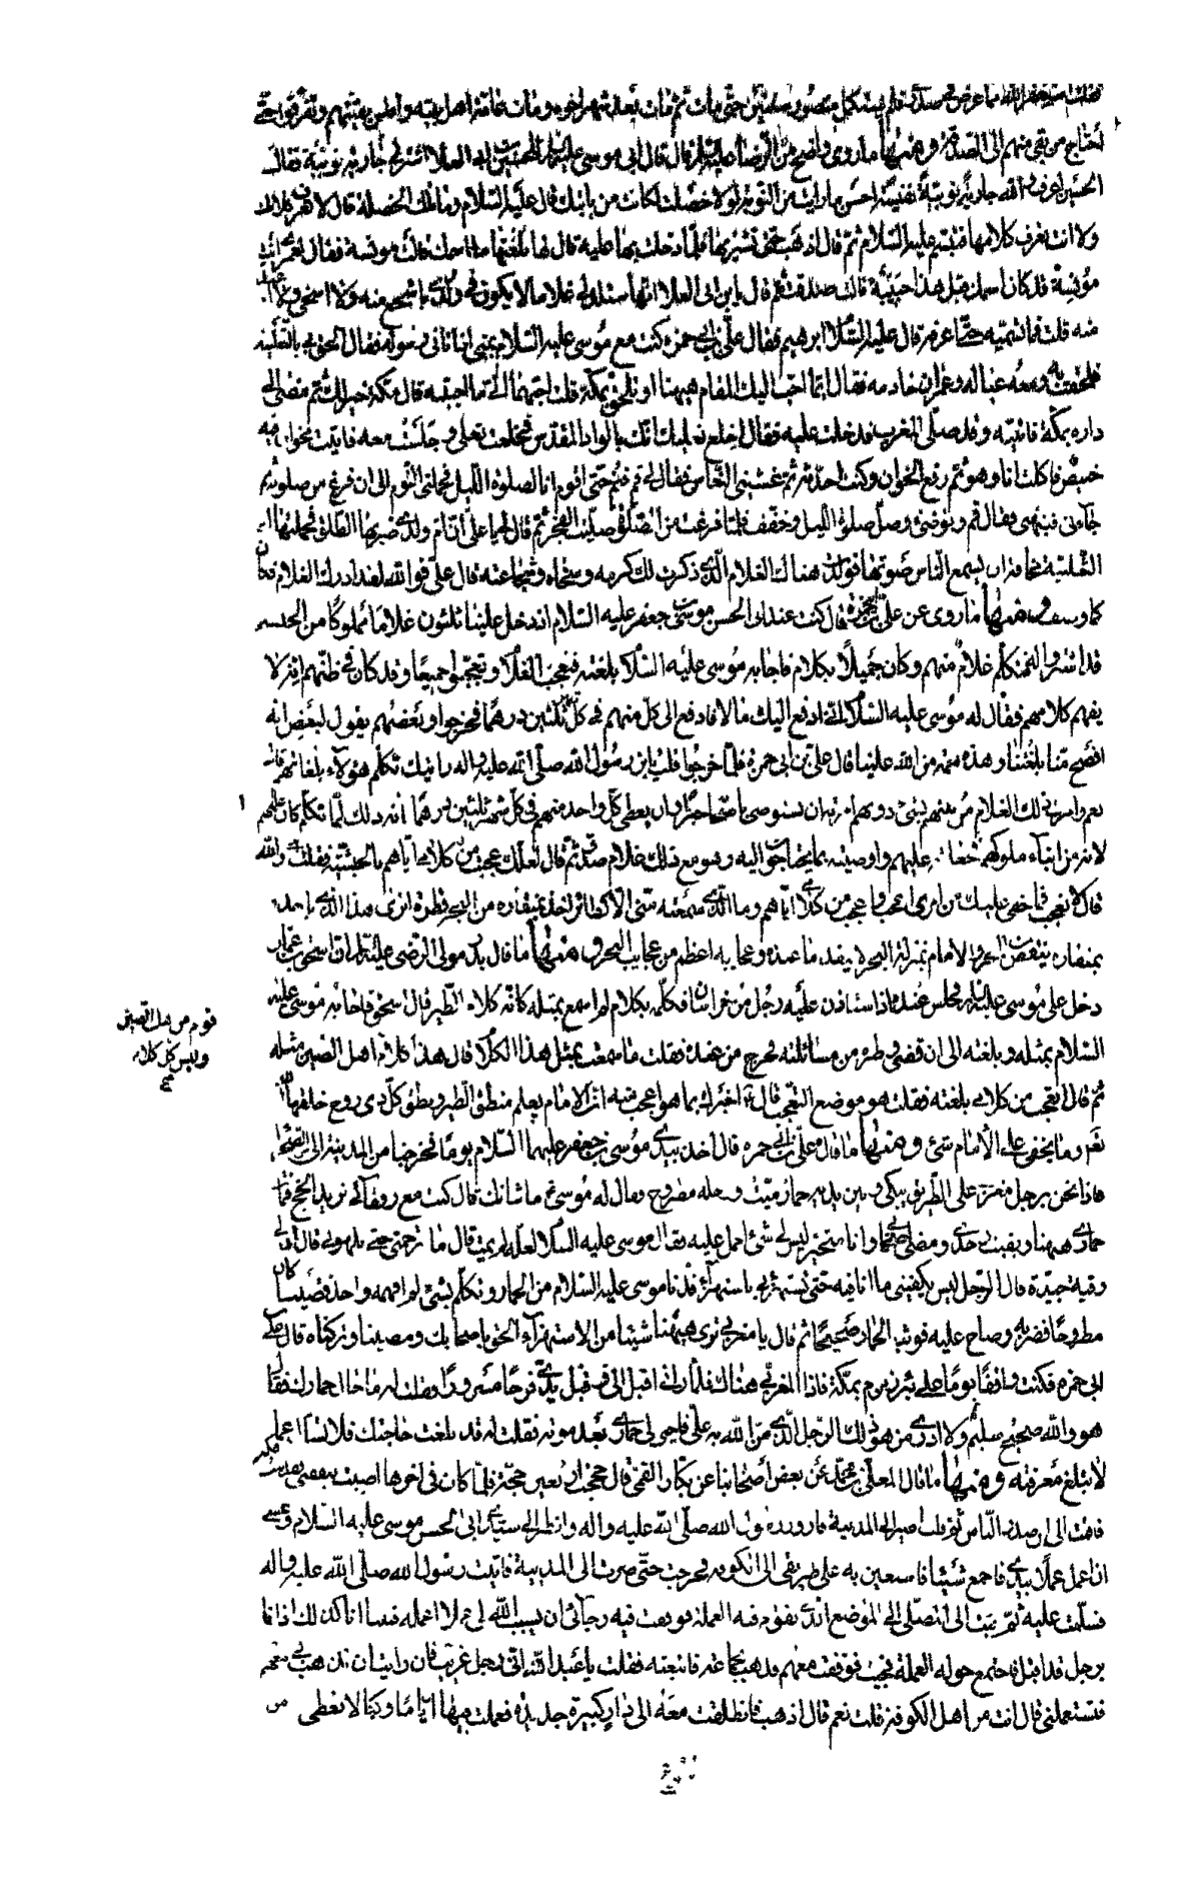 أحتاج من بقي منهم إلى الصدقة ومنها ما روي واضح عن الرضا عليه السلام قال قال أبي موسى عليه السلام للحسين بن أبي العلا اشتر لي جارية نوبية فقال
الحسين أعرف والله جارية نوبية نفيسة أحسن ما رأيت من النوبة لولا خصلة لكانت من بابتك قال عليه السلام وما تلك الخصلة قال لا تعرف كلامك
ولا أنت تعرف كلامها فتبسم عليه السلام ثم قال اذهب حتى تشتريها فلما دخلت بها عليه قال لها بلغتها ما اسمك قالت مونسة فقال لعمري أنت
مؤنسة قد كان اسمك قبل هذا حبيبة قالت صدقت ثم قال يا بن أبي العلا إنها ستلد لي غلاما لا يكون في ولدي أشجع منه ولا أسخى ولا أعبد
منه قلت فما تسميه حتى أعرفه قال عليه السلام إبرهيم فقال علي بن أبي حمزة كنت مع موسى عليه السلام بمنى إذ أتاني رسوله فقال الحق بي بالثعلبية
فلحقت به ومعه عياله وعمران خادمه فقال أيما أحب إليك المقام ههنا أو تلحق بمكة قلت أحبهما إلي ما أحببته قال مكة خير لك ثم مضى إلى
داره بمكة فأتيته وقد صلى المغرب فدخلت عليه فقال اخلع نعليك إنك بالواد المقدس فخلعت نعلي وجلست معه فأتيت بخوان فيه
خبيص فأكلت أنا وهو ثم رفع الخوان وكنت أحدثه ثم غشيني النعاس فقال لي قم فنم حتى أقوم أنا لصلوة الليل فحملني النوم إلى أن فرغ من صلوته ثم
جاءني فنبهني فقال قم وتوضئ وصل صلوة الليل وخفف فلما فرغت من الصلوة صلينا الفجر ثم قال لي يا علي إن أم ولدي ضربها الطلق فحملتها إلى
الثعلبية مخافة أن يسمع الناس صوتها فولدت هناك الغلام الذي ذكرت لك كرمه وسخاه وشجاعته قال علي فوالله لقد أدركت الغلام فكان
كما وصف ومنها ما روي عن علي بن أبي حمزة قال كنت عند أبي الحسن موسى بن جعفر عليه السلام إذ دخل علينا ثلثون غلاما مملوكا من الحبشة
قد اشتروا له فتكلم غلام منهم وكان جميلا بكلام فأجابه موسى عليه السلام بلغته فتعجب الغلام وتعجبوا جميعا وقد كان في ظنهم أنه لا
يفهم كلامهم فقال له موسى عليه السلام إني أدفع إليك مالا فادفع إلى كل منهم في كل شهر ثلثين درهما فخرجوا وبعضهم يقول لبعض إنه
أفصح منا بلغتنا وهذه نعمة من الله علينا قال علي بن أبي حمزة فلما خرجوا قلت يا بن رسول الله صلى الله عليه وآله رأيتك تكلم هؤلاء بلغاتهم قال
نعم وأمرت ذلك الغلام من بينهم بشئ دونهم أمرته أن يستوصي بأصحابه خيرا وأن يعطي كل واحد منهم في كل شهر ثلثين درهما لأنه ذلك لما تكلم كان أعلمهم
لأنه من أبناء ملوكهم فجعلته عليهم وأوصيته بما يحتاجون إليه وهو مع ذلك غلام صدق ثم قال لعلك عجبت من كلامي إياهم بالحبشية فقلت إي والله
قال لا تعجب فما خفي عليك من أمري أعجب وأعجب من كلامي إياهم وما الذي سمعته مني إلا كطائر أخذ بمنقاره من البحر قطرة أفترى هذا الذي يأخذه
بمنقاره ينقص البحر والإمام بمنزلة البحر لا ينفد ما عنده وعجايبه أعظم من عجايب البحر ومنها ما قال بدر مولى الرضا عليه السلام إن إسحق بن عمار
دخل على موسى عليه السلام فجلس عنده إذ استأذن عليه رجل من خراسان فكلمه بكلام لم أسمع بمثله كأنه كلام الطير قال إسحق فأجابه موسى عليه
السلام بمثله وبلغته إلى أن قضى وطره من مسائلته فخرج من عنده فقلت ما سمعت بمثل هذا الكلام قال هذا كلام أهل الصين مثله
ثم قال أتعجب من كلامي بلغته فقلت هو موضع التعجب قال أخبرك بما هو أعجب منه إن الإمام يعلم منطق الطير ونطق كل ذي روح خلقها الله
تعالى وما يخفى على الإمام شئ ومنها ما قال علي بن أبي حمزة قال أخذ بيدي موسى بن جعفر عليهما السلام يوما فخرجنا من المدينة إلى الصحراء
فإذا نحن برجل مغربي على الطريق يبكي وبين يديه حمار ميت ورحله مطروح فقال له موسى ع ما شأنك قال كنت مع رفقائي نريد الحج فمات
حماري ههنا وبقيت وحدي ومضى أصحابي وأنا متحير ليس لي شئ أحمل عليه فقال موسى عليه السلام لعله لم يمت قال ما ترحمني حتى تلهو بي قال إن لي
رقية جيدة قال الرجل ليس يكفيني ما أنا فيه حتى تستهزئ بي استهزاء فدنا موسى عليه السلام من الحمار وتكلم بشئ لم أفهمه وأخذ قضيبا كان
مطروحا فضربه وصاح عليه فوثب الحمار صحيحا ثم قال يا مغربي ترى ههنا شيئا من الاستهزاء الحق بأصحابك ومضينا وتركناه قال علي بن
أبي حمزة فكنت واقفا يوما على بئر زمزم بمكة فإذا المغربي هناك فلما رآني أقبل إلي فقبل يدي فرحا مسرورا فقلت له ما حال حمارك فقال
هو والله صحيح سليم ولا أدري من هو ذلك الرجل الذي من الله به علي فأحيى لي حماري بعد موته فقلت له قد بلغت حاجتك فلا تسأل عما
لا تبلغ معرفته ومنها ما قال المعلى بن محمد عن بعض أصحابنا عن بكار القمي قال حججت أربعين حجة فلما كان في آخرها أصبت بنفقتي بمكة
فأقمت إلى أن صدر الناس ثم قلت أصير إلى المدينة فأزور رسول الله صلى الله عليه وآله وأنظر إلى سيدي أبي الحسن موسى عليه السلام وعسى
أن أعمل عملا بيدي فأجمع شيئا فأستعين به على طريقي إلى الكوفة فخرجت حتى صرت إلى المدينة فأتيت رسول الله صلى الله عليه وآله
فسلمت عليه ثم جئت إلى المصلى إلى الموضع الذي يقوم فيه العملة فوقفت فيه رجاء أن يسبب الله لي عملا أعمله فبينا أنا كذلك إذ أنا
برجل قد أقبل فاجتمع حوله العملة فجئت فوقفت معهم فذهب بجماعة فاتبعته فقلت يا عبد الله إني رجل غريب فإن رأيت أن تذهب بي معهم
فتستعملني قال أنت من أهل الكوفة قلت نعم قال اذهب فانطلقت معه إلى دار كبيرة جديدة فعملت فيها أياما وكنا لا نعطى من
قوم من أهل الصين
وليس كل كلام